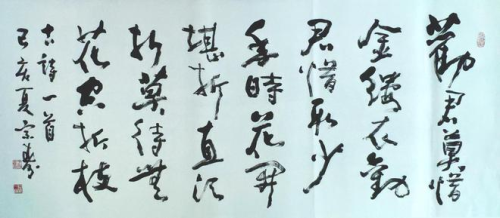 勸君莫惜
金縷衣勸
君惜取少
年時花開
堪折直須
折莫待無
花空折枝
古詩一首
己亥夏宗